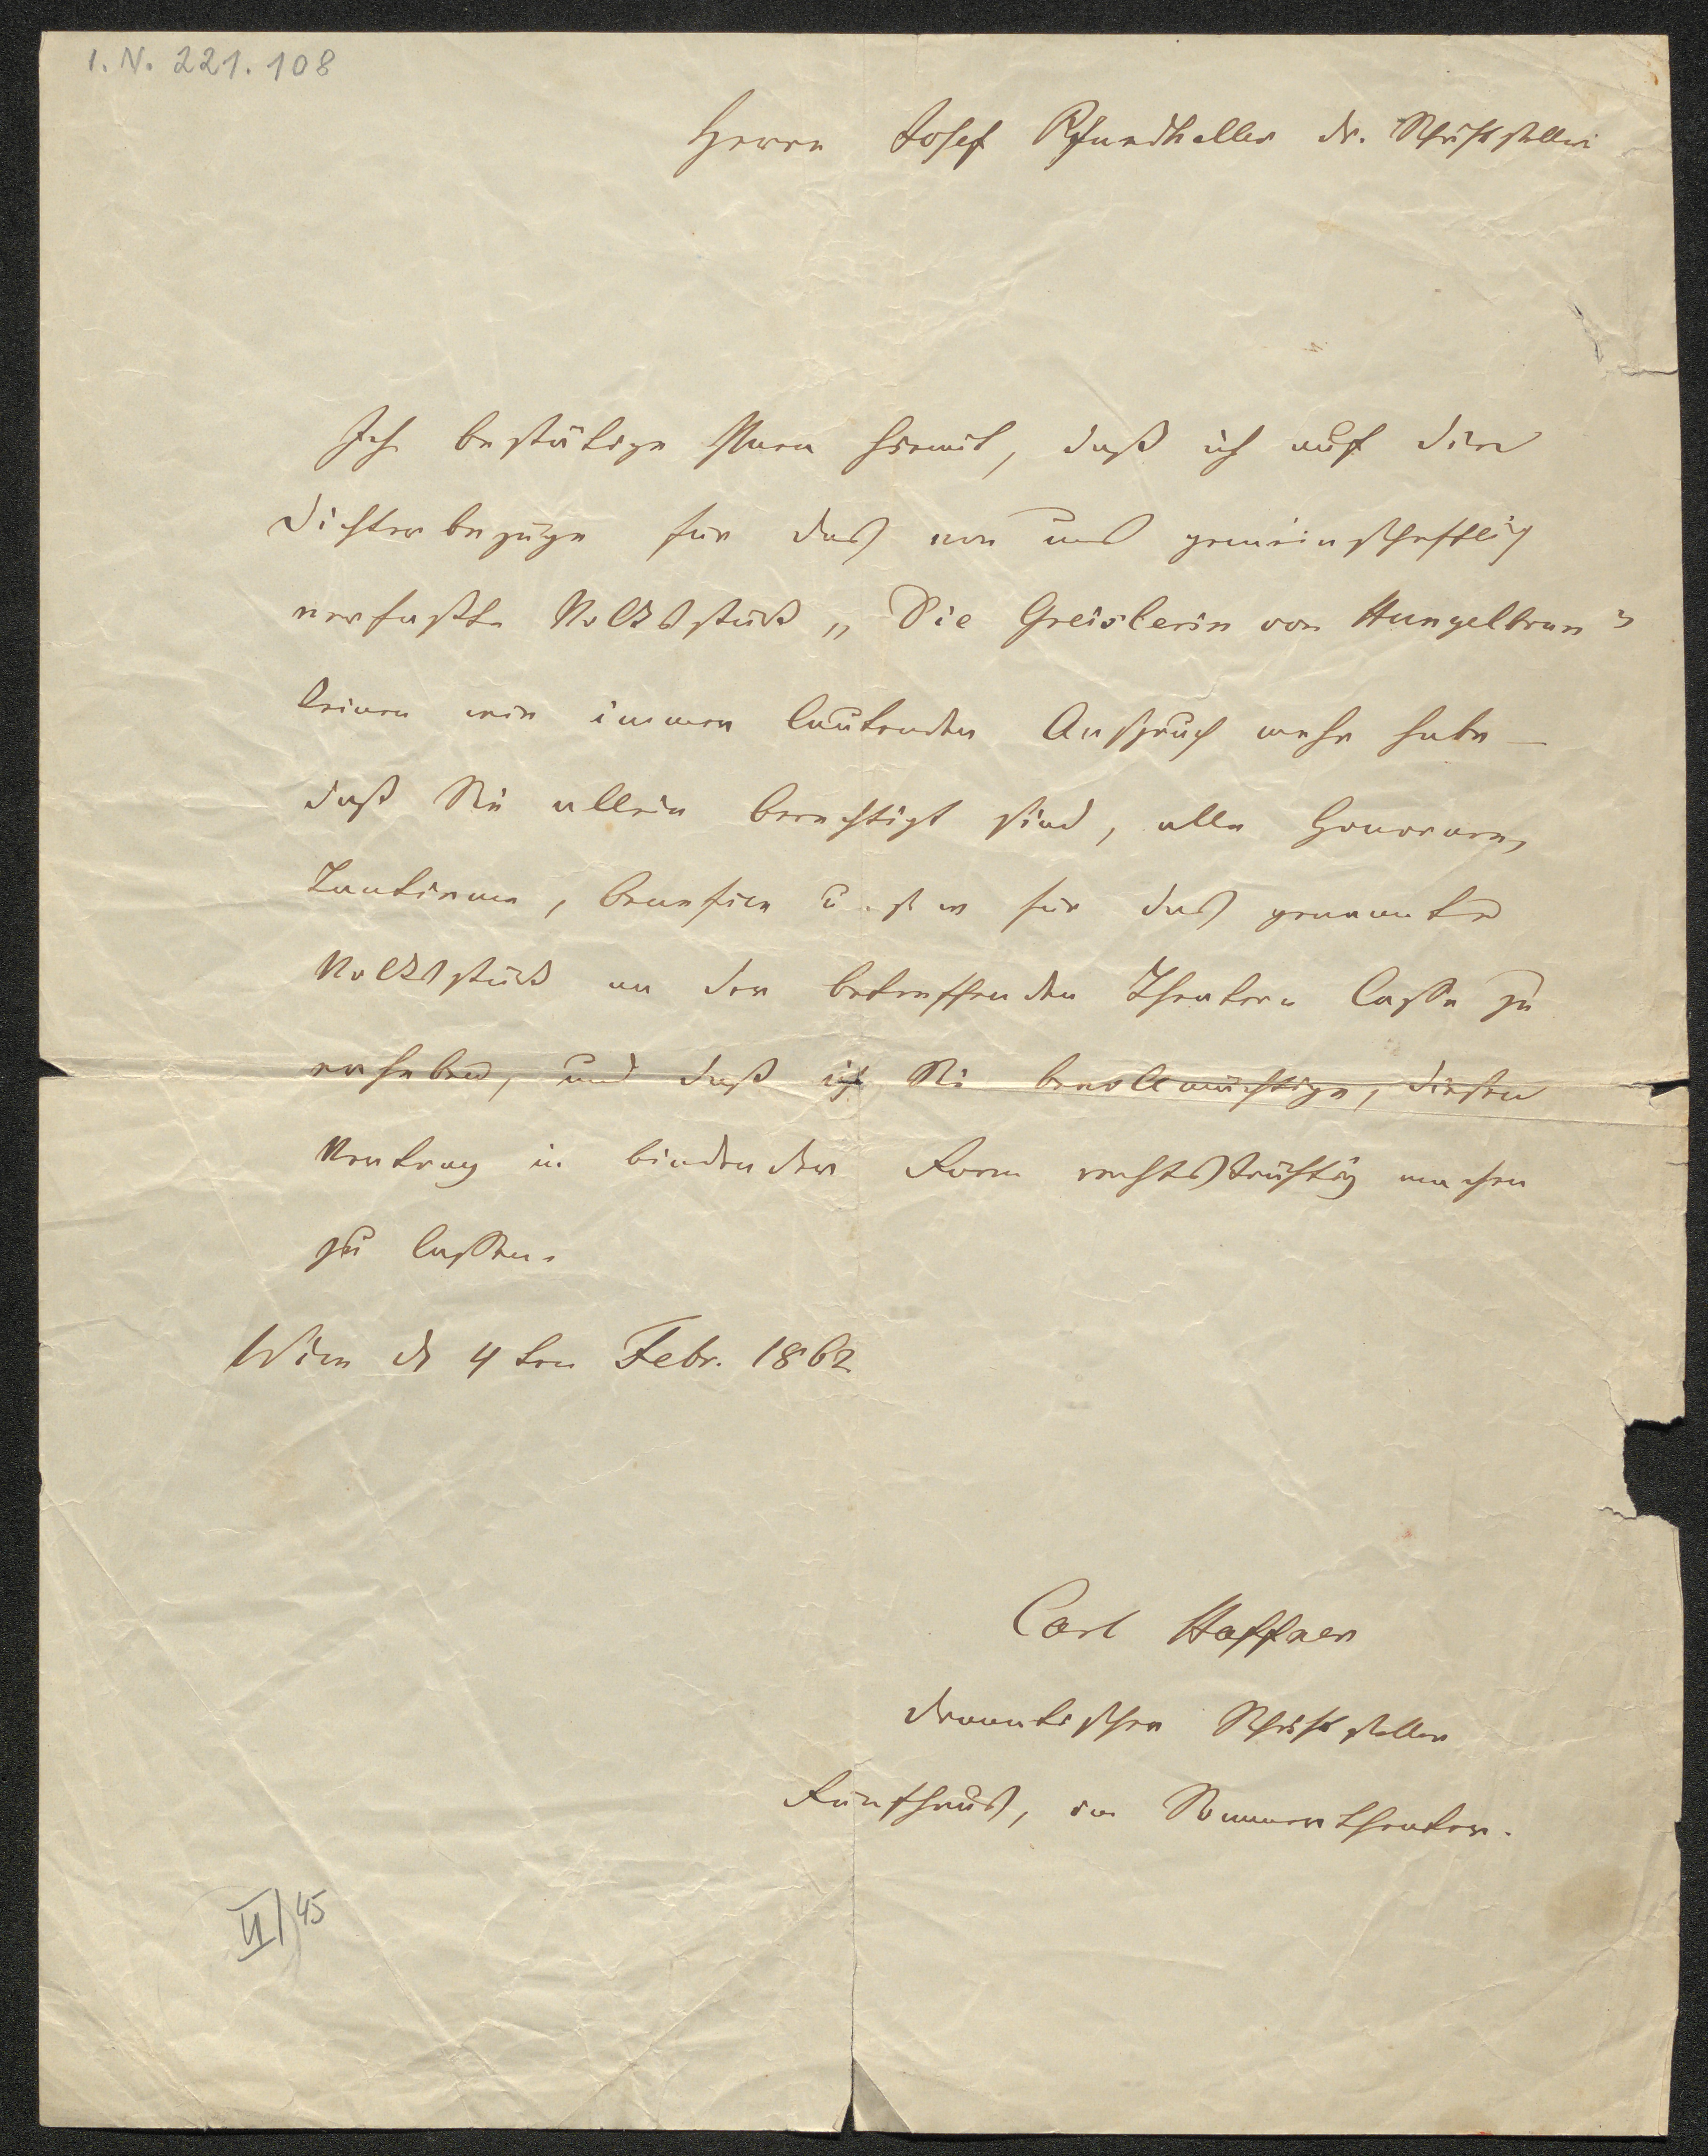 I. N. 221.108
Herrn Josef Pfundheller dr. Schriftsteller
Ich bestätige Ihnen hiemit, daß ich auf die
Dichterbezüge für das von uns gemeinschaftlich
verfaßte Volksstück „Die Greislerin von Hungelbrun"
keinen wie immer lautenden Anspruch mehr habe –
daß Sie allein berechtigt sind, alle Honorare,
Tantiemen, benefice u. s w für das genannte
Volksstück an der betreffenden Theater Casse zu
erheben, und daß ich Sie bevollmächtige, diesen
Vertrag in bindender Form rechtskräftig machen
zu lassen.
Wien d 4ten Febr. 1862
Carl Haffner
dramatischer Schriftsteller
Fünfhaus, im Sommertheater.
VI/45